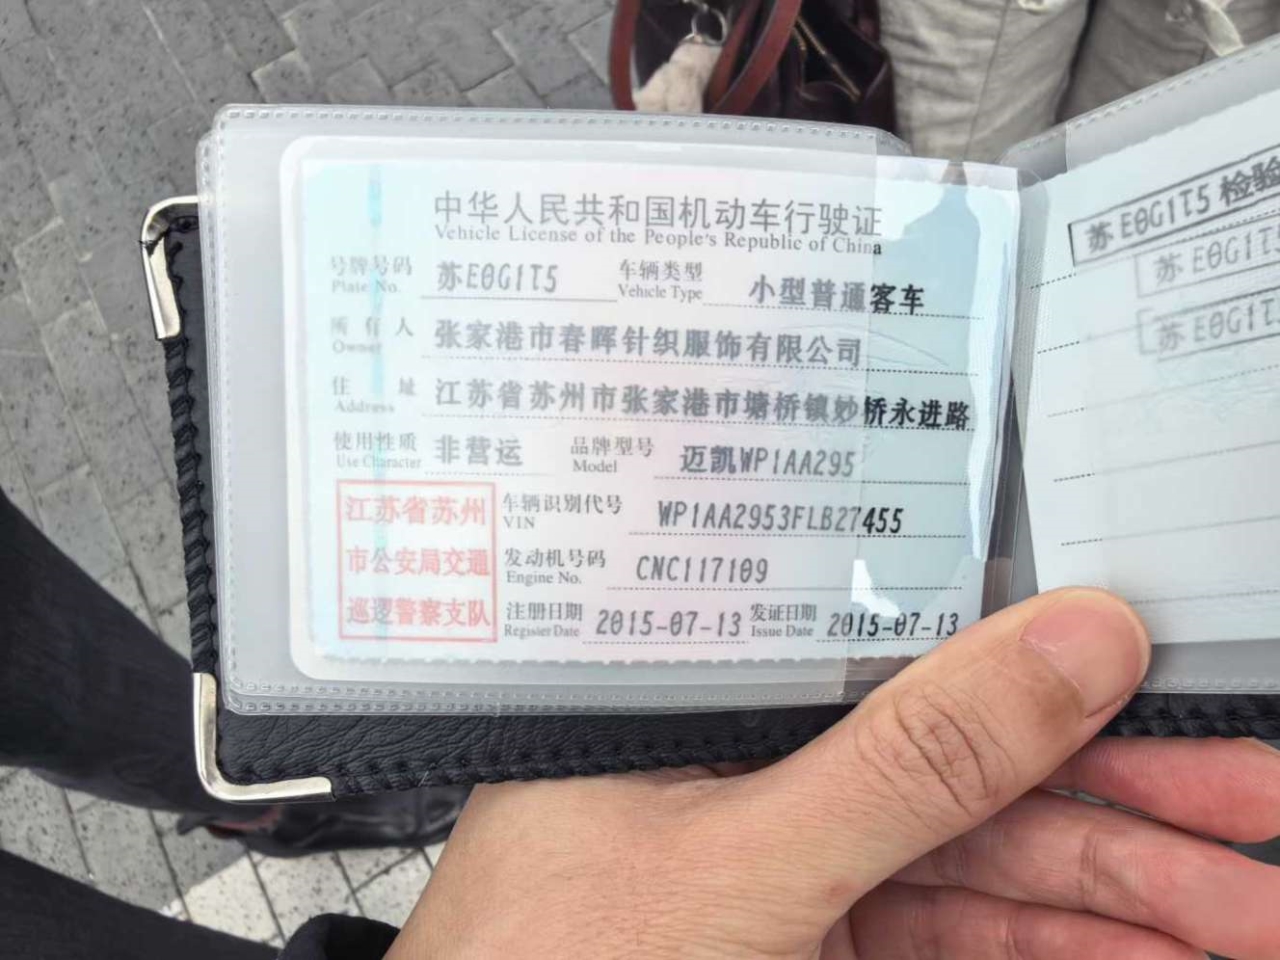 中华人民共和国机动车行驶证
Vehicle License of the People's Republic of China
号牌号码 苏E0G1T5 车辆类型 小型普通客车
Plate No. Vehicle Type
所有人 张家港市春晖针织服饰有限公司
Owner
住址 江苏省苏州市张家港市塘桥镇妙桥永进路
Address
使用性质 非营运 品牌型号 迈凯WP1AA295
Use Character Model
江苏省苏州
市公安局交通
巡逻警察支队
车辆识别代号 WP1AA2953FLB27455
VIN
发动机号码 CNC117109
Engine No.
注册日期 2015-07-13 发证日期 2015-07-13
Register Date Issue Date
苏E0G1T5 检验
苏E0G1T
苏E0G1T